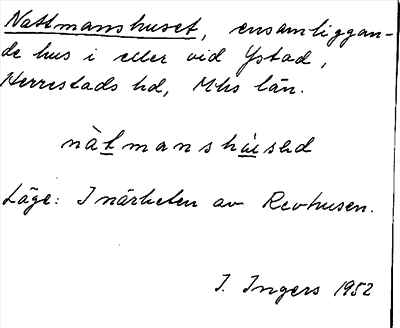 Nattmanshuset, ensamliggan-
de hus i eller vid Ystad,
Herrestads hd, Mhs län.
nàtmanshúsəd
Läge: I närheten av Revhusen.
I. Ingers 1952